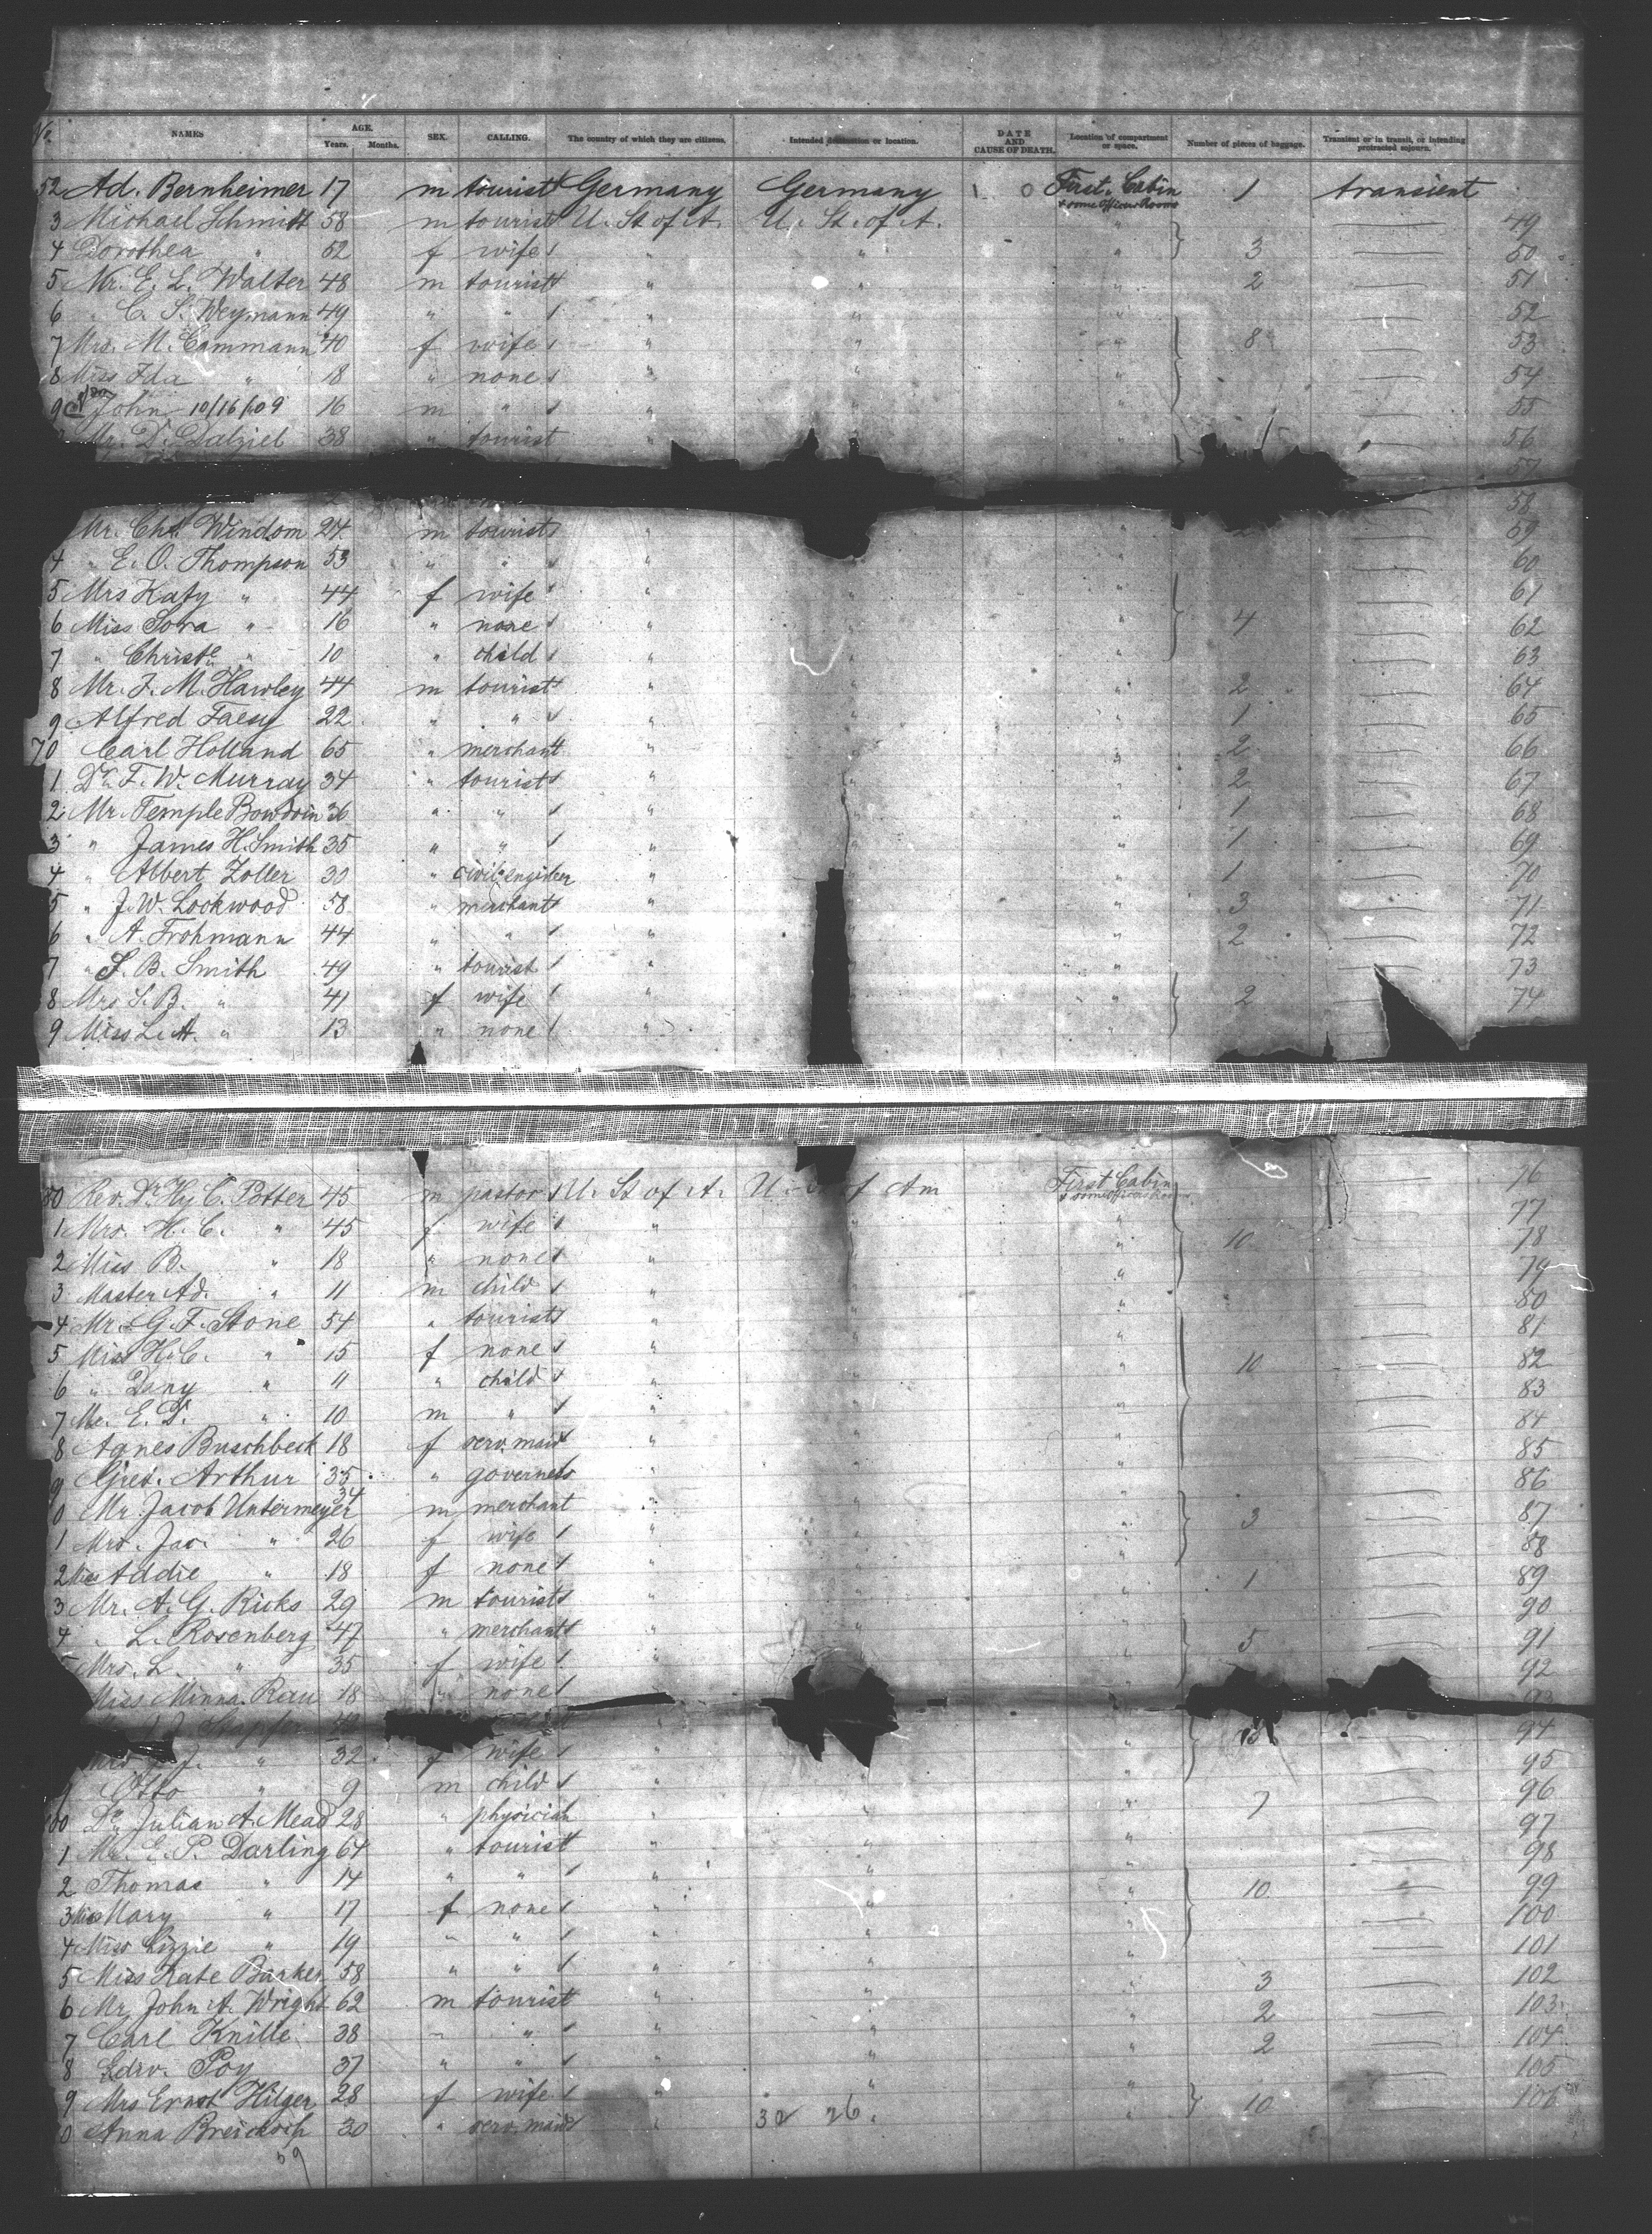 No. NAMES AGE. Years. Months. SEX. CALLING. The country of which they are citizens. Intended destination or location. DATE AND CAUSE OF DEATH. Location of compartment or space. Number of pieces of baggage. Transient or in transit, or intending protracted sojourn.
52 Ad. Bernheimer 17 m tourist Germany Germany First Cabin + some Officers Rooms 1 transient
3 Michael Schmidt 58 m tourist U. St. of A. U. St. of A. " 49
4 Dorothea " 52 f wife " " " 3 50
5 Mr. E. L. Walter 48 m tourist " " " 2 51
6 " C. S. Weymann 49 " " " " 52
7 Mrs. M. Cammann 40 f wife " " " 8 53
8 Miss Ida " 18 " none " " " 54
9 John 10/16/09 16 m " " " " 55
Mr. D. Dalziel 38 " tourist " " 56
57
58
Mr. Chs. Windom 24 m tourist " " 2 59
4 " E. O. Thompson 53 " " " " 60
5 Mrs Katy " 44 f wife " " " 61
6 Miss Sora " 16 " none " " " 4 62
7 " Christe " 10 " child " " " 63
8 Mr. J. M. Hawley 44 m tourist " " " 2 64
9 Alfred Faesy 22 " " " " " 1 65
70 Carl Holland 65 " merchant " " " 2 66
1 Dr. F. W. Murray 34 " tourist " " " 2 67
2 Mr. Temple Bowdoin 36 " " " " 1 68
3 " James H. Smith 35 " " " " 1 69
4 " Albert Zoller 30 " civil engineer " " 1 70
5 " J. W. Lockwood 58 " merchant " " 3 71
6 " A. Frohmann 44 " " " " 2 72
7 " S. B. Smith 49 " tourist " " 73
8 Mrs S. B. " 41 f wife " " 2 74
9 Miss L. A. " 13 " none " "
80 Rev. Dr. Hy C. Potter 45 m pastor U. St. of A. U. f Am First Cabin + some Officers Rooms 76
1 Mrs. H. C. " 45 f wife " " " 77
2 Miss B. " 18 " none " " " 10 78
3 Master Ad. " 11 m child " " " 79
4 Mr. G. F. Stone 54 " tourist " " " 80
5 Miss H. C. " 15 f none " " " 81
6 " Dany " 11 " child " " " 10 82
7 Mr. E. D. " 10 m " " " " 83
8 Agnes Buschbeck 18 f serv. maid " " " 84
9 Arthur 35 " governess " " " 85
0 Mr Jacob Untermeyer 34 m merchant " " " 86
1 Mrs. Jac. " 26 f wife " " " 3 87
2 Miss Addie " 18 f none " " " 88
3 Mr. A. G. Ricks 29 m tourist " " " 1 89
4 " L. Rosenberg 47 " merchant " " " 90
5 Mrs. L. " 35 f wife " " 5 91
Miss Minna Rau 18 " none " 92
J. Stapfer 42 " 93
Mrs J. " 32 f wife " " 13 94
9 Otto " 9 m child " " " 95
100 Dr. Julian A. Mead 28 " physician " " " 7 96
1 Mr. E. P. Darling 64 " tourist " " " 97
2 Thomas " 14 " " " " " 98
3 Miss Mary " 17 f none " " " 10 99
4 Miss Lizzie " 19 " " " " " 100
5 Miss Kate Barker 58 " " " " " 101
6 Mr John A. Wright 62 m tourist " " " 3 102
7 Carl Knille 38 " " " " " 2 103
8 Edw. Poy 37 " " " " " 2 104
105
9 Mrs Ernst Hilger 28 f wife " " " 10 106
0 Anna 30 " serv. maid " 32 26 "
59